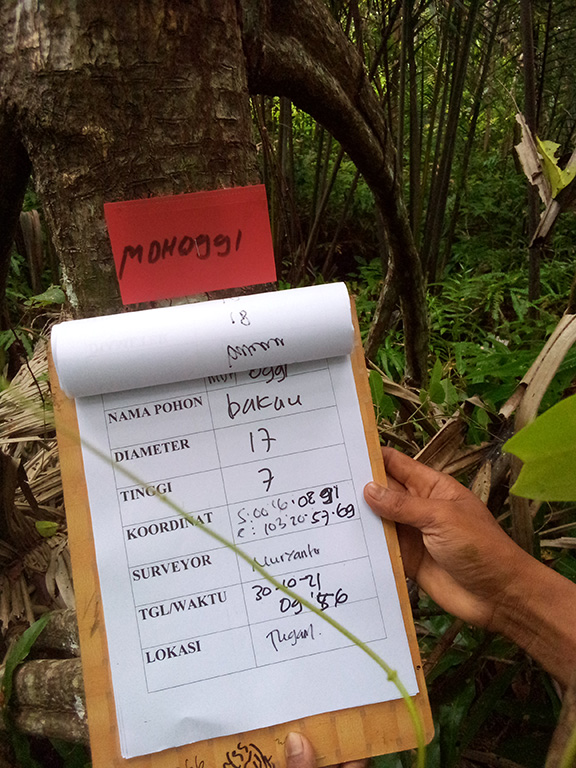 MOHOGGI
18
MOH OGGI
NAMA POHON bakau
DIAMETER 17
TINGGI 7
KOORDINAT S:00°16·08 91
E: 103·20·57·69
SURVEYOR Nuryanto
TGL/WAKTU 30-10-21
09:56
LOKASI Tugam.